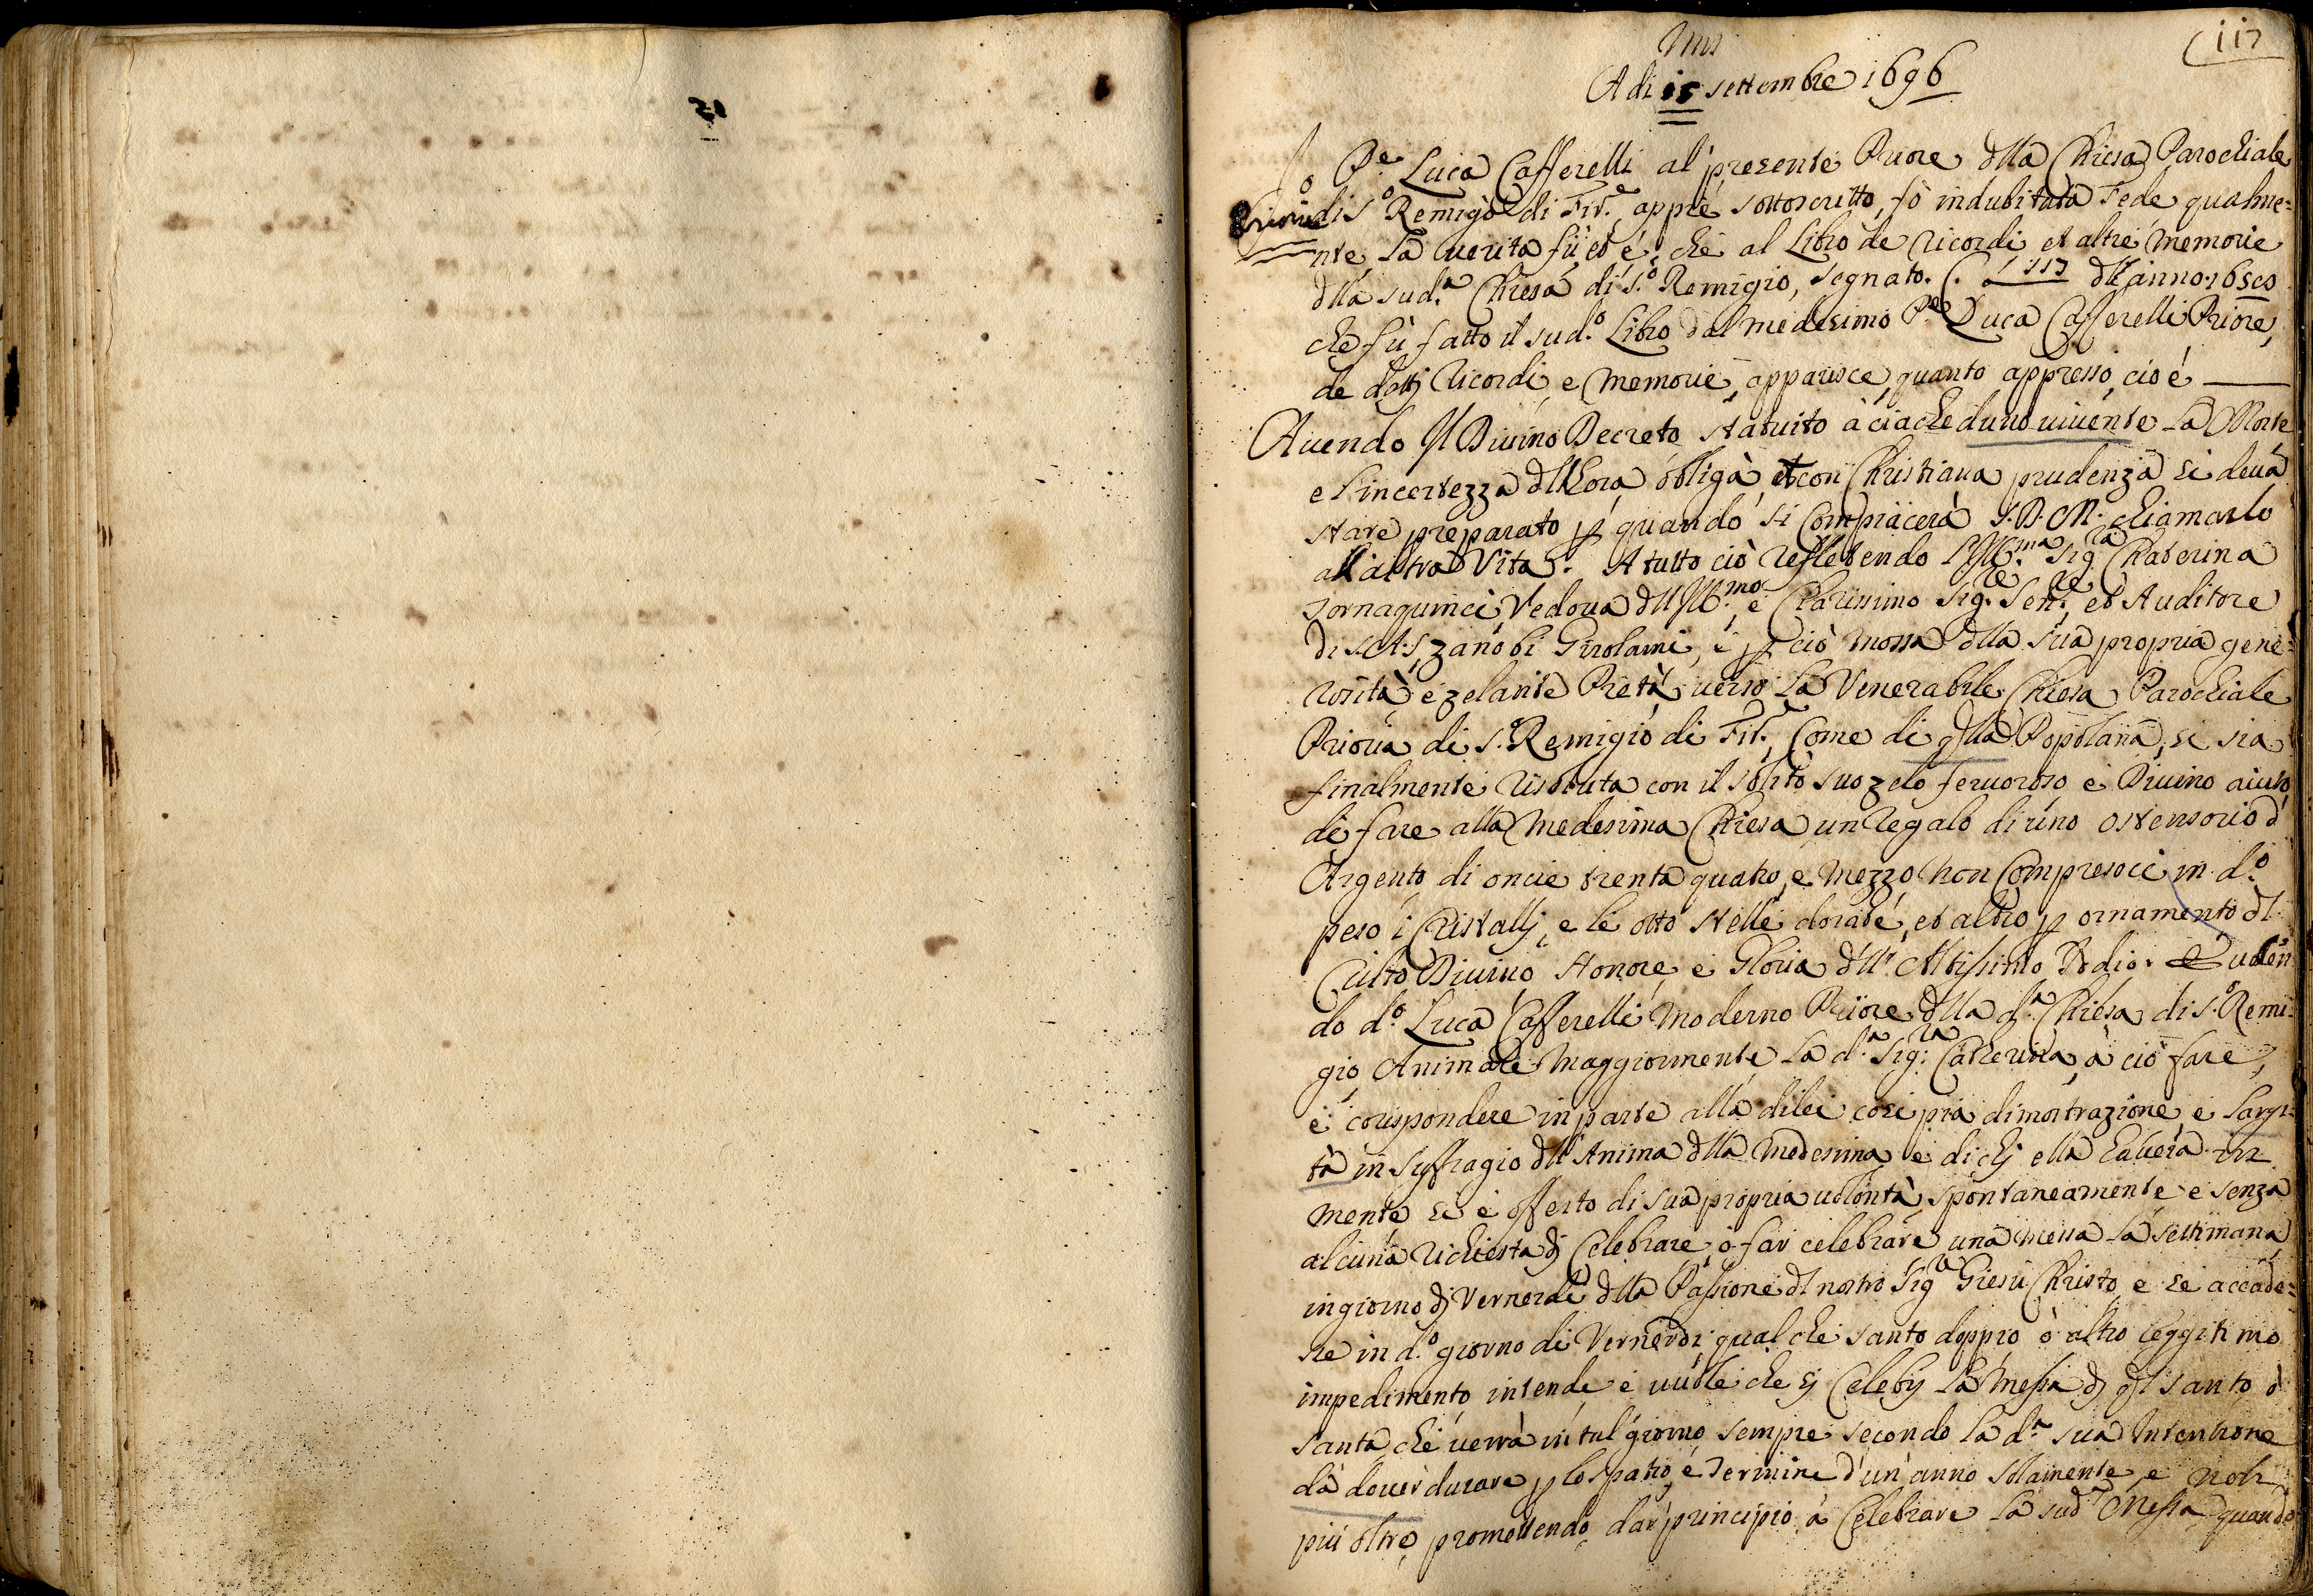 117
Adi 15 settembre 1696
Io Pe. Luca Cafferelli al presente Priore dlla Chiesa Parochiale
Prioria di S.o Remigio di Fir.e appié sottoscritto, fò indubitata Fede qualme=
nte la verita fù, et é, che al Libro de ricordi et altre memorie
dlla sud.a Chiesa di S.o Remigio, segnato. C. dll'anno
che fù fatto il sud.o Libro dal medesimo P.e Luca Cafferelli Priore,
de dettj ricordi, e memorie, apparisce, quanto appresso, cioé
Avendo Il Divino Decreto statuito à ciacheduno vivente la Morte
e l'incertezza dll'hora obliga et con Christiana prudenza si deva
stare preparato p quando si Compiacerà S.D.M. chiamarlo
all'altra Vita. A tutto ciò reflettendo l'Ill.ma Sig.ra Chaterina
Tornaquinci, Vedova dll'Ill.mo e Clarissimo Sig.re Sen.re et Auditore
di S.A.S. Zanobi Girolami, e p ciò mossa dlla sua propria gene=
rosità, e zelante Pietà, verso la Venerabile Chiesa Parochiale
Prioria di S. Remigio di Fir.e Come di qlla Popolana, si sia
finalmente risoluta con il solito suo zelo fervoroso e Divino aiuto
di fare alla Medesima Chiesa un regalo di uno ostensorio d'
Argento di oncie trenta quatro, e mezzo non Compresoci in d.o
peso i Cristallj, e le otto stelle dorate, et altro p ornamento dl
Culto Divino Honore, e Gloria dll'Altissimo Iddio. Volen
do d.o Luca Cafferelli moderno Priore dlla d.a Chiesa di S.o Remi=
gio Animare maggiormente la d.a Sig.ra Catterina, à ciò fare,
e corispondere in parte alla di lei così pia dimostrazione, e largi=
tà in suffragio dll'Anima dlla medesima e di chj ella haverà in
mente si è offerto di sua propria volontà, spontaneamente, e senza
alcuna richiesta dj Celebrare, ò far celebrare una messa la settimana
in giorno dj Vernerdi dlla Passione dl nostro Sig.re Giesù Christo, e se accade=
ße in d.o giorno di Vernerdi, qual che santo doppio ò altro leggitimo
impedimento, intende, e vuole che sj Celebrj la Messa dj ql santo, ò
santa che verrà in tal giorno, sempre secondo la d.a sua Intentione
da dover durare p lo spatio, e Termine d'un'anno solamente, e non
più oltre, promettendo dar principio à Celebrare la sud.a Messa quando